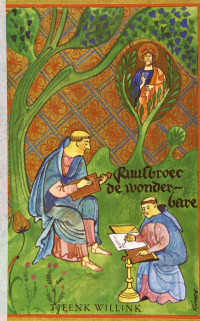 Ruusbroec
de wonder-
bare
TJEENK WILLINK